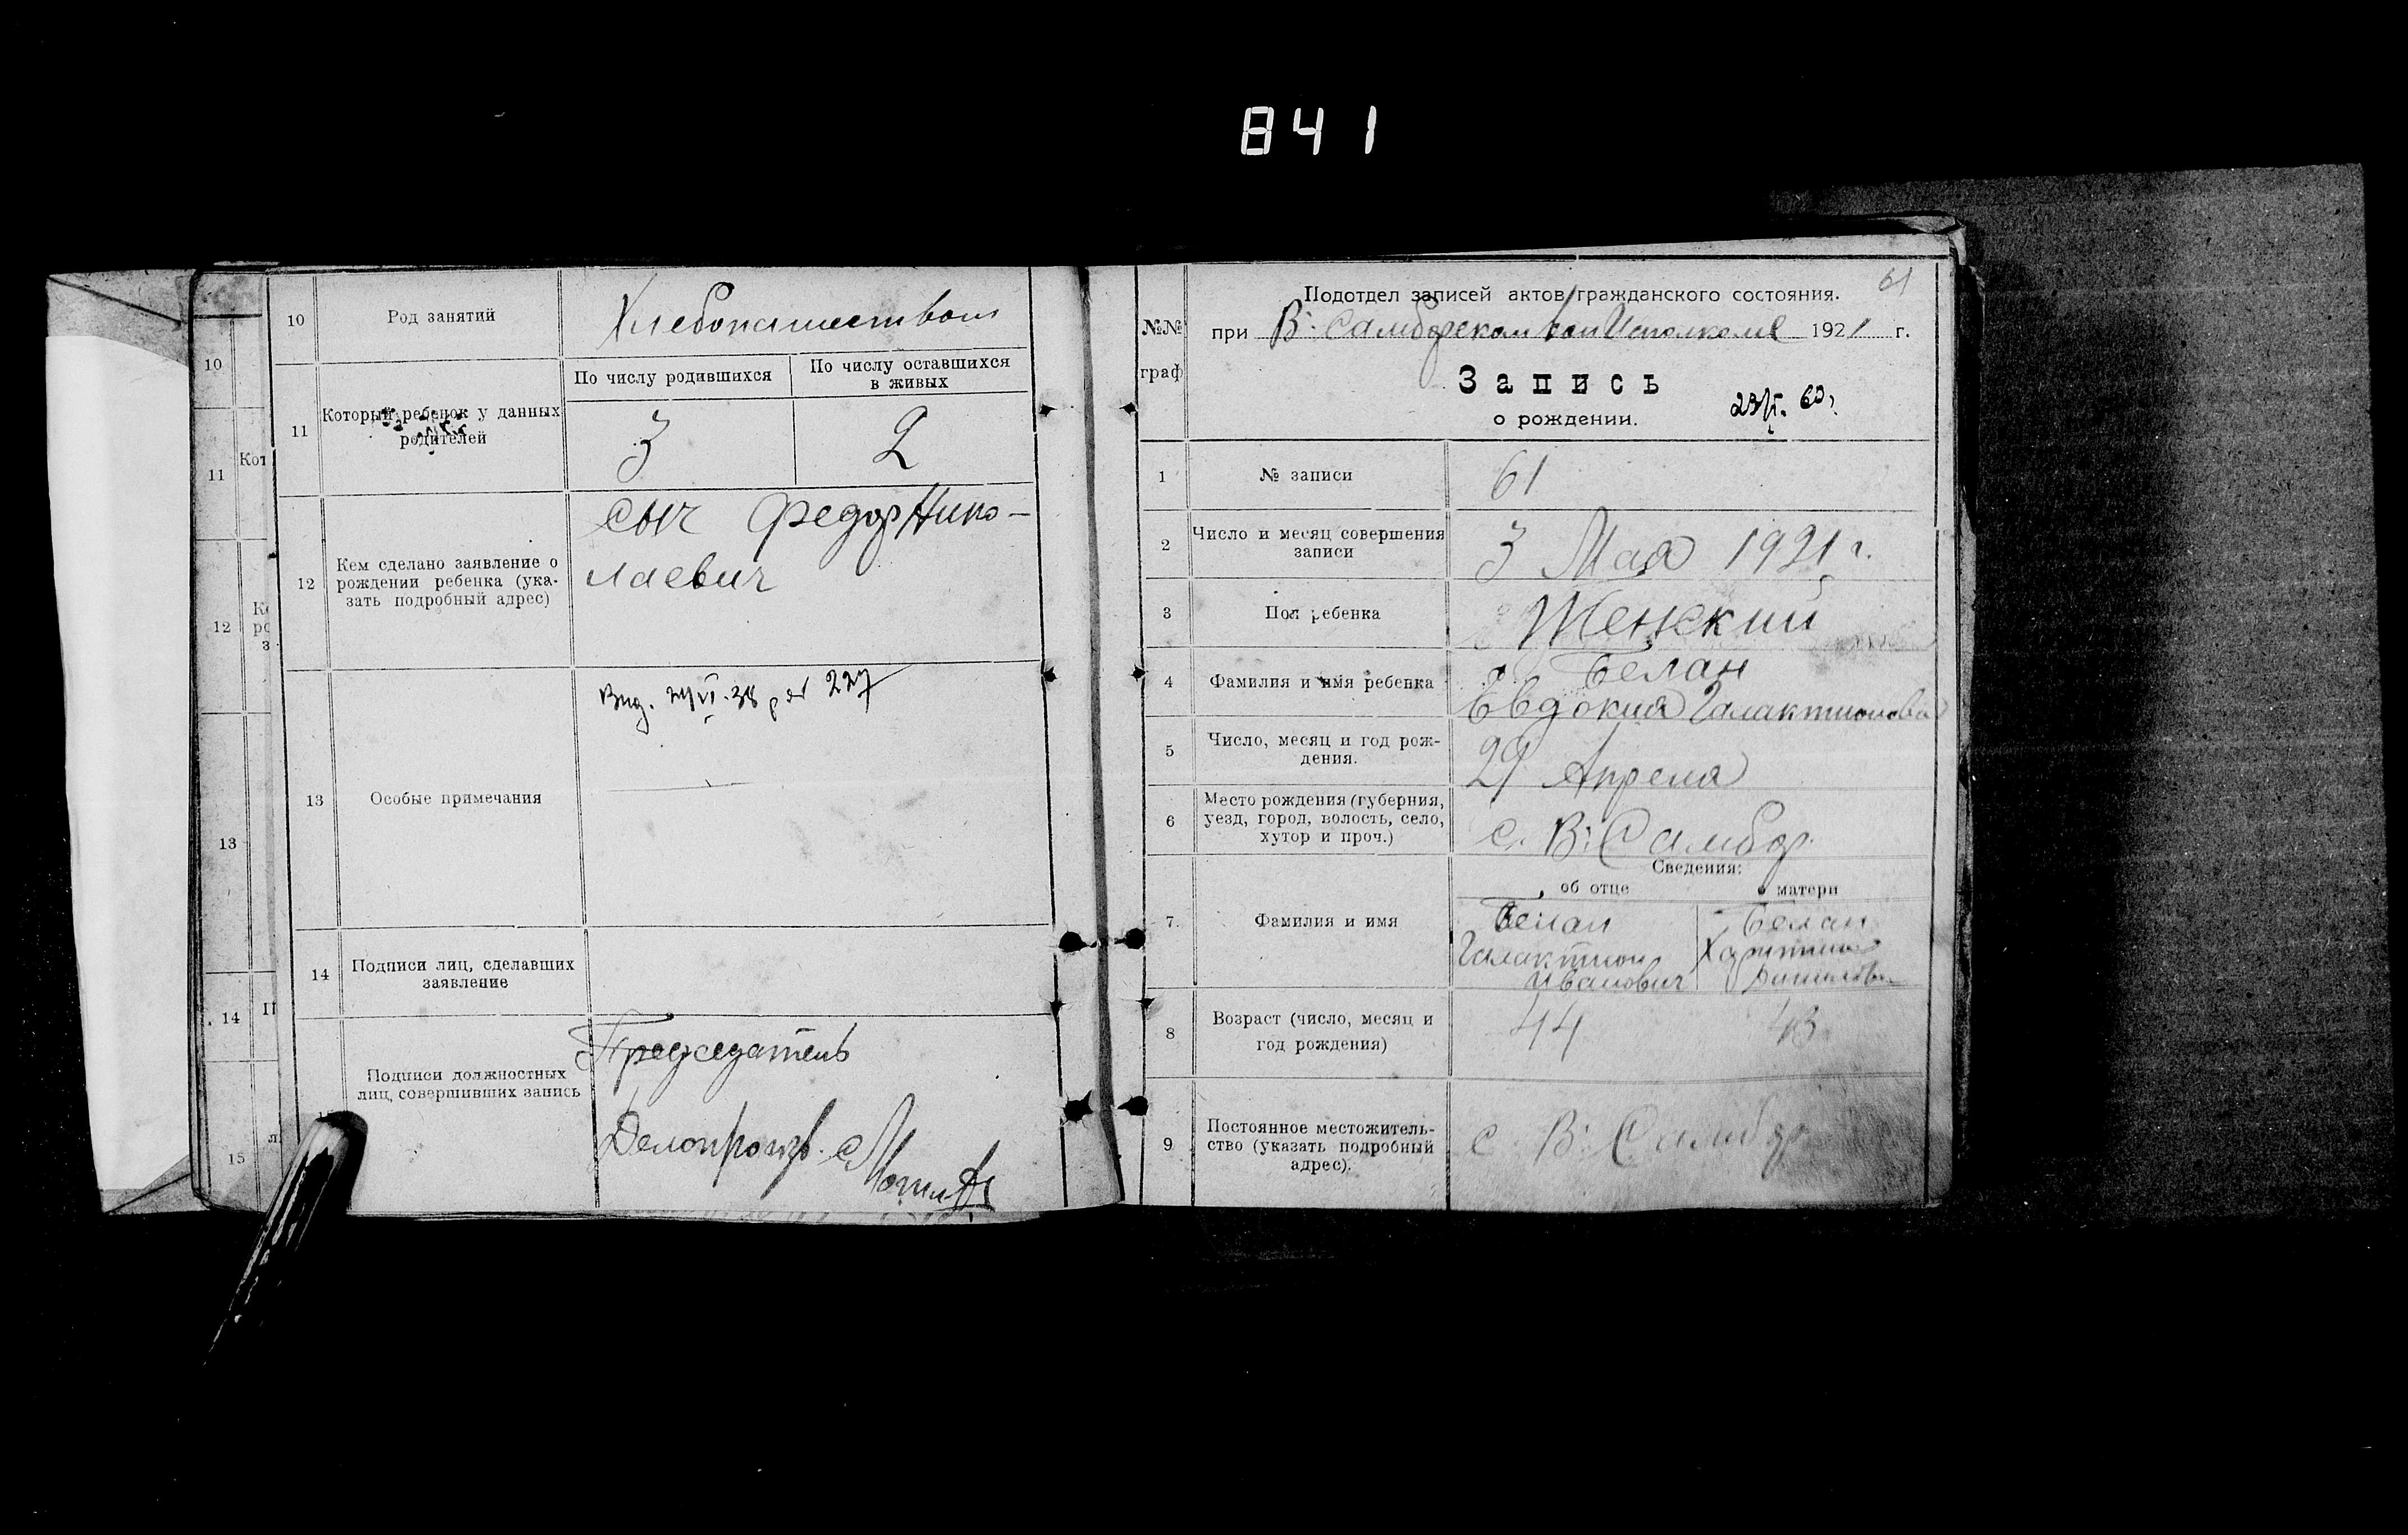 841
10
Род занятий
Хлебопашеством
11
Который ребенок у данных
родителей
По числу родившихся
По числу оставшихся
в живых
3
2
12
Кем сделано заявление о
рождении ребенка (ука-
зать подробный адрес)
Сыч Федор Нико-
лаевич
13
Особые примечания
227
14
Подписи лиц, сделавших
заявление
Подписи должностных
лиц, совершивших запись
Председатель
Делопроизв.
10
11
Кот
12
13
14
15
61
№№
граф
Подотдел записей актов гражданского состояния.
при В: Самборском Вол Исполкоме 1921 г.
Запись
о рождении.
1
№ записи
61
2
Число и месяц совершения
записи
3 Мая 1921 г.
3
Пол ребенка
Женский
4
Фамилия и имя ребенка
Белан
Евдокия Галактионова
5
Число, месяц и год рож-
дения.
29 Апреля
6
Место рождения (губерния,
уезд, город, волость, село,
хутор и проч.)
с. В: Самбор
Сведения:
об отце
о матери
7.
Фамилия и имя
Белан
Галактион
Иванович
Белан
Харитина
8
Возраст (число, месяц и
год рождения)
44
43
9
Постоянное местожитель-
ство (указать подробный
адрес).
с В: Самбор